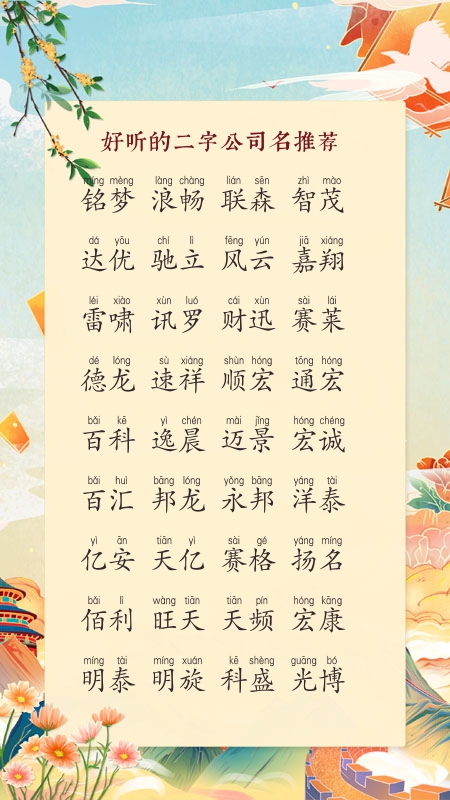 好听的二字公司名推荐
míng mèng làng chàng lián sēn zhì mào
铭梦 浪畅 联森 智茂
dá yōu chí lì fēng yún jiā xiáng
达优 驰立 风云 嘉翔
léi xiào xùn luó cái xùn sài lái
雷啸 讯罗 财迅 赛莱
dé lóng sù xiáng shùn hóng tōng hóng
德龙 速祥 顺宏 通宏
bǎi kē yì chén mài jǐng hóng chéng
百科 逸晨 迈景 宏诚
bǎi huì bāng lóng yǒng bāng yáng tài
百汇 邦龙 永邦 洋泰
yì ān tiān yì sài gé yáng míng
亿安 天亿 赛格 扬名
bǎi lì wàng tiān tiān pín hóng kāng
佰利 旺天 天频 宏康
míng tài míng xuán kē shèng guāng bó
明泰 明旋 科盛 光博